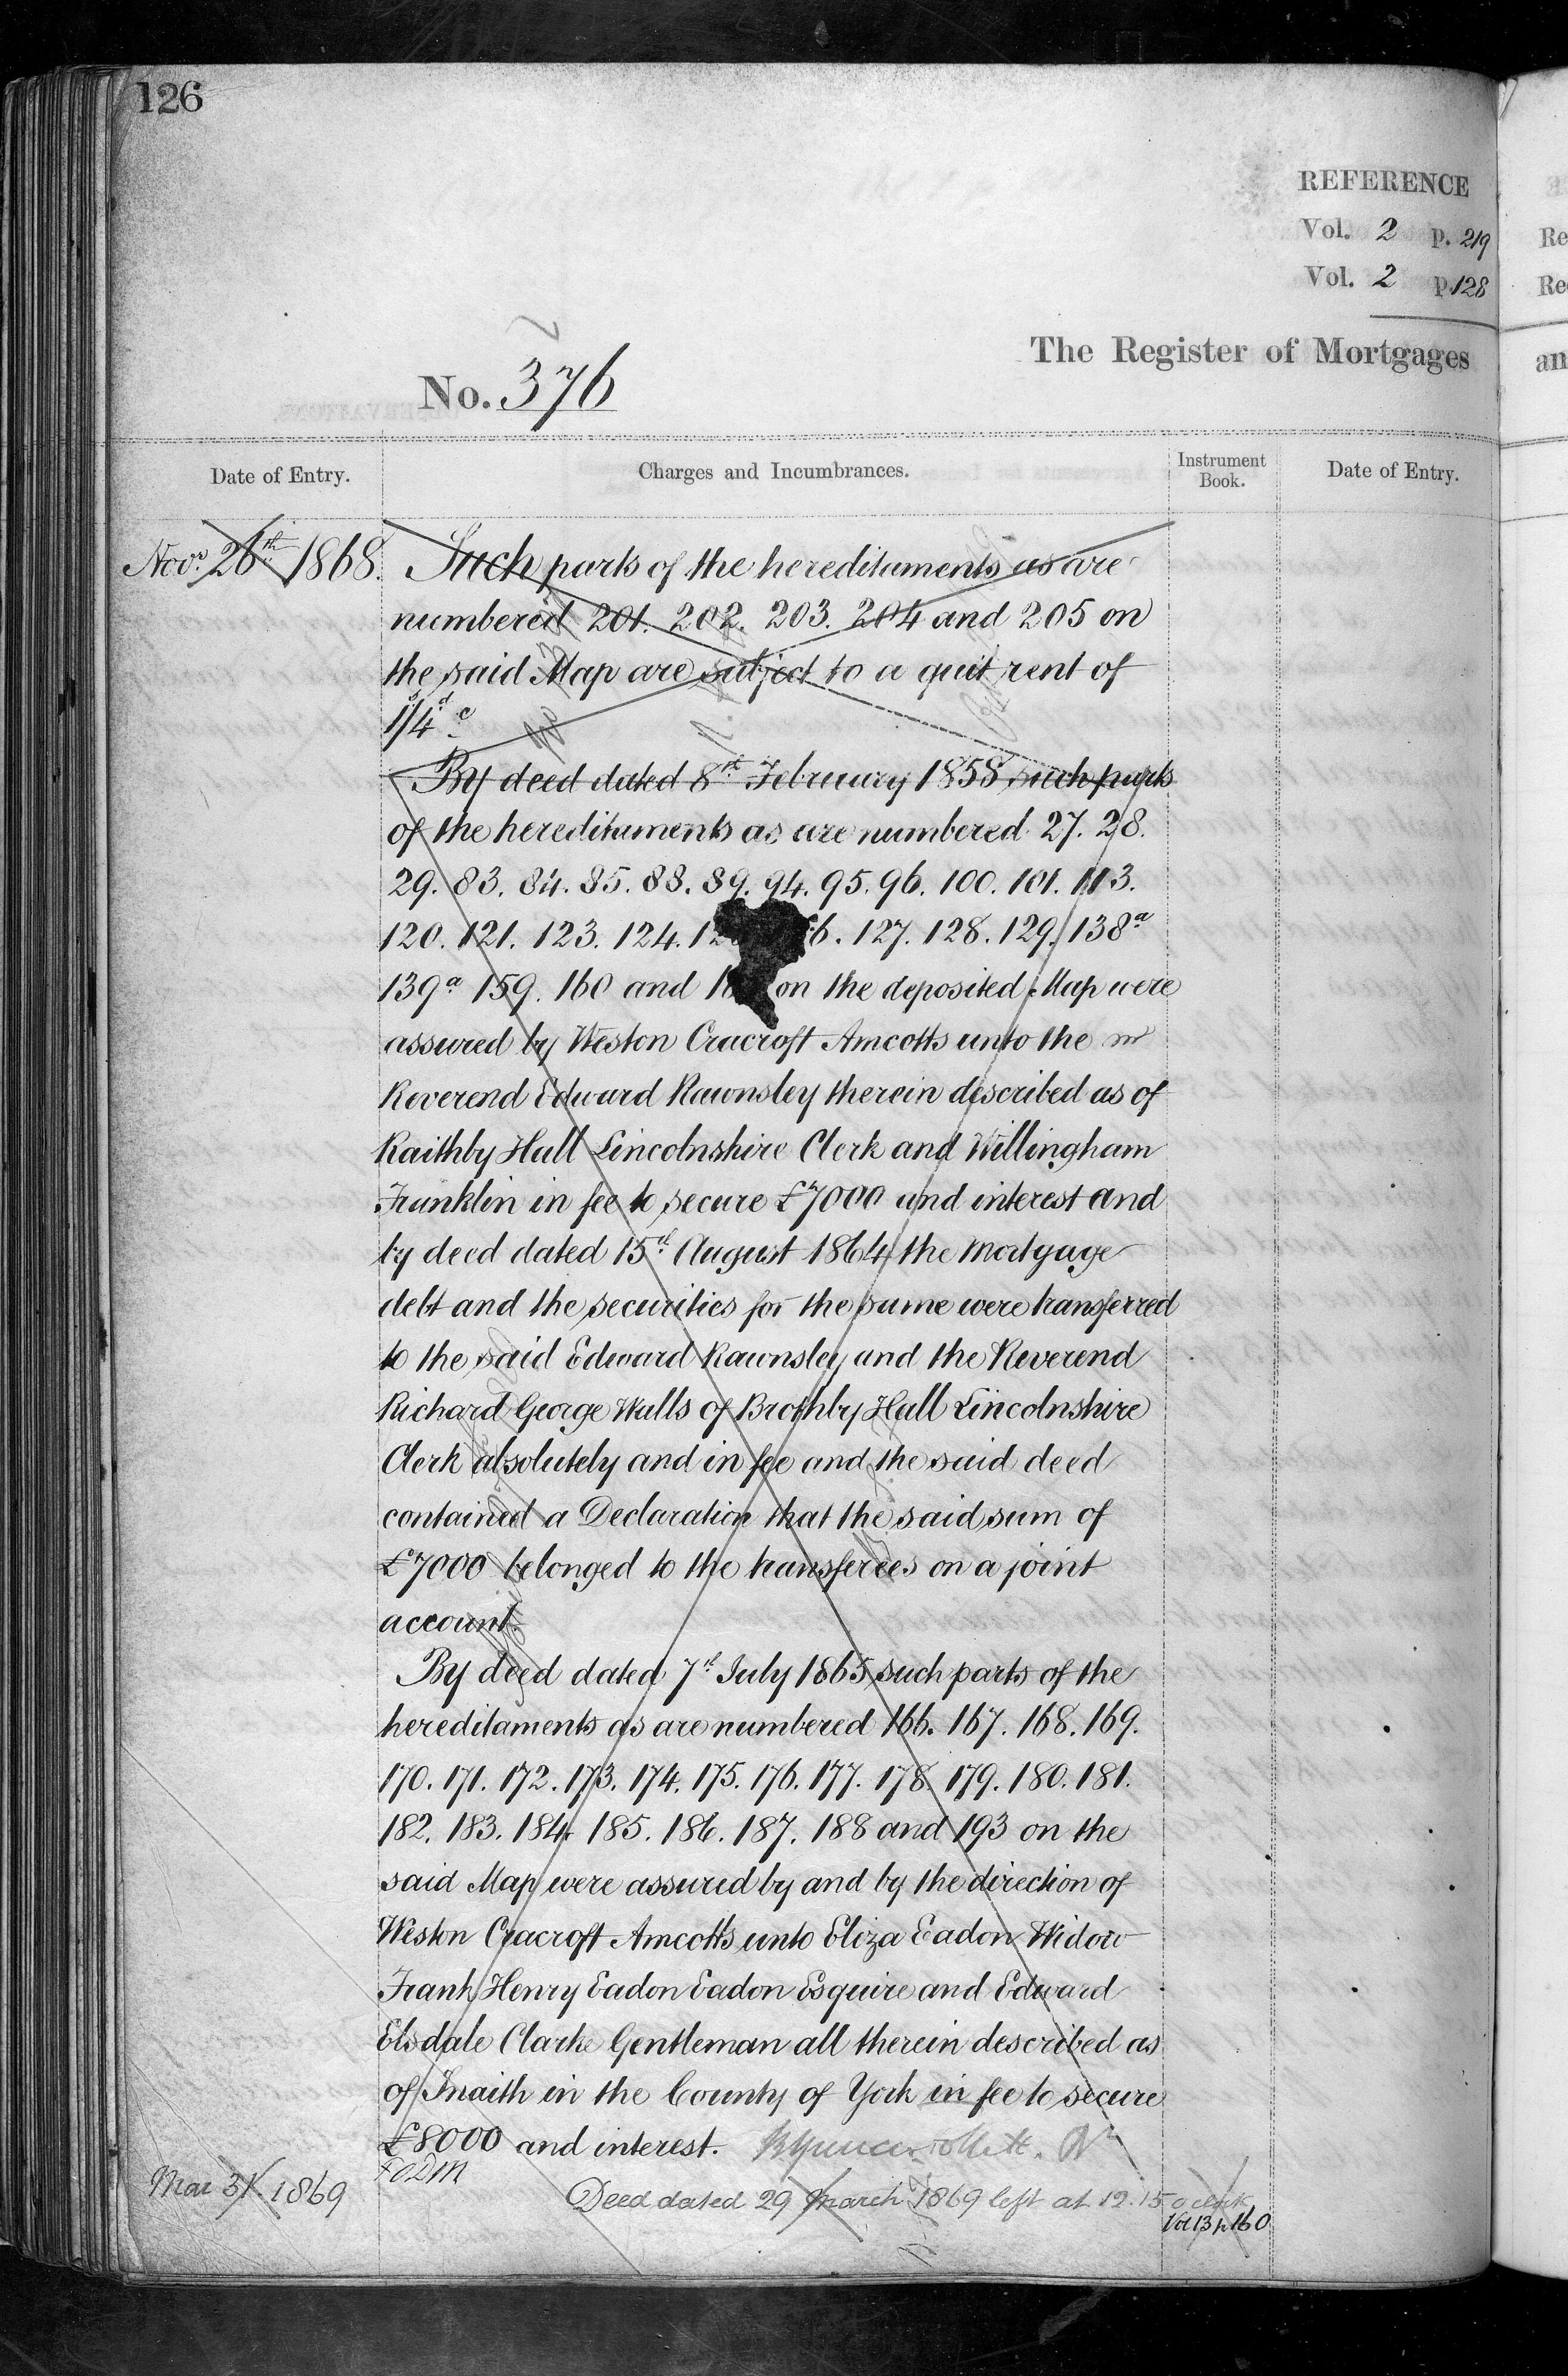 126
REFERENCE
Vol. 2 p. 219
Vol. 2 p. 128
The Register of Mortgages
No. 376
Date of Entry.
Charges and Incumbrances.
Instrument Book.
Date of Entry.
Novr. 26th 1868. Such parts of the hereditaments as are
numbered 201. 202. 203. 204 and 205 on
the said Map are subject to a quit rent of
1s/4d
By deed dated 8th February 1858 such parts
of the hereditaments as are numbered 27. 28.
29. 83. 84. 85. 88. 89. 94. 95. 96. 100. 101. 113.
120. 121. 123. 124. 127. 128. 129. 138a
139a 159. 160 and on the deposited Map were
assured by Weston Cracroft Amcotts unto the
Reverend Edward Rawnsley therein described as of
Raithby Hall Lincolnshire Clerk and Willingham
Franklin in fee to secure £7000 and interest and
by deed dated 15th August 1864 the mortgage
debt and the securities for the same were transferred
to the said Edward Rawnsley and the Reverend
Richard George Walls of Brothby Hall Lincolnshire
Clerk absolutely and in fee and the said deed
contained a Declaration that the said sum of
£7000 belonged to the transferees on a joint
account.
By deed dated 7th July 1865 such parts of the
hereditaments as are numbered 166. 167. 168. 169.
170. 171. 172. 173. 174. 175. 176. 177. 178. 179. 180. 181.
182. 183. 184. 185. 186. 187. 188 and 193 on the
said Map were assured by and by the direction of
Weston Cracroft Amcotts unto Eliza Eadon Widow
Frank Henry Eadon Eadon Esquire and Edward
Elsdale Clarke Gentleman all therein described as
of Snaith in the County of York in fee to secure
£8000 and interest.
Mar 31. 1869 Deed dated 29 March 1869 left at 12.15 o'clock
Vol 13 p 160